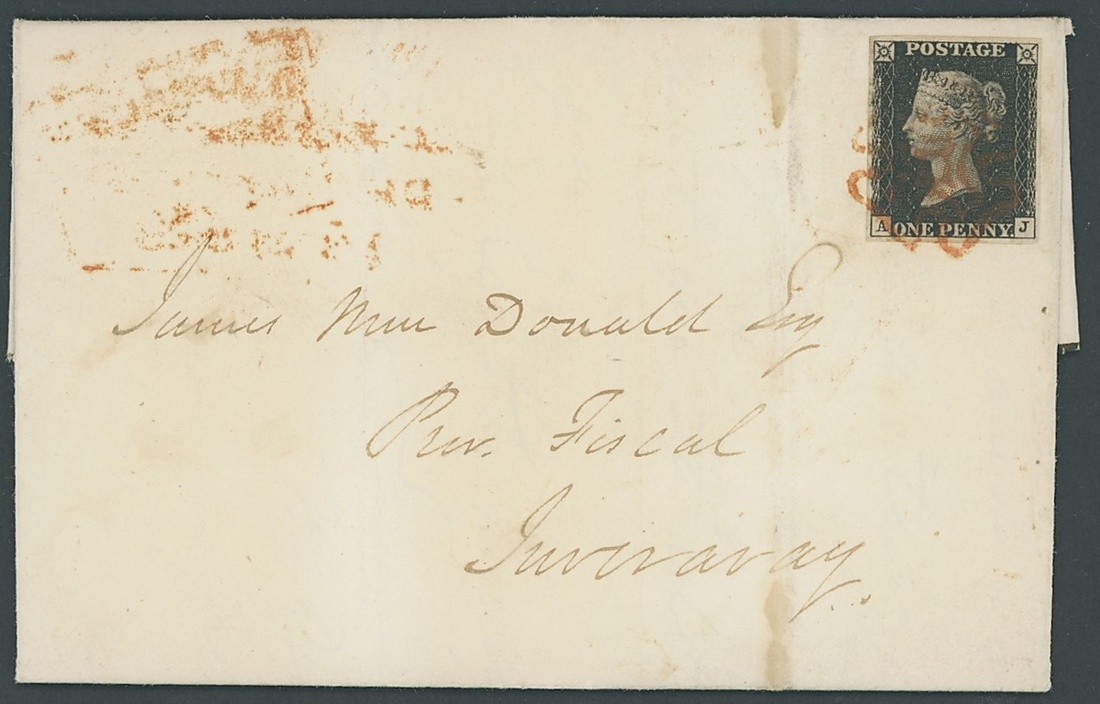 POSTAGE
A ONE PENNY. J
James Mac Donald Esq
Pror. Fiscal
Inveraray